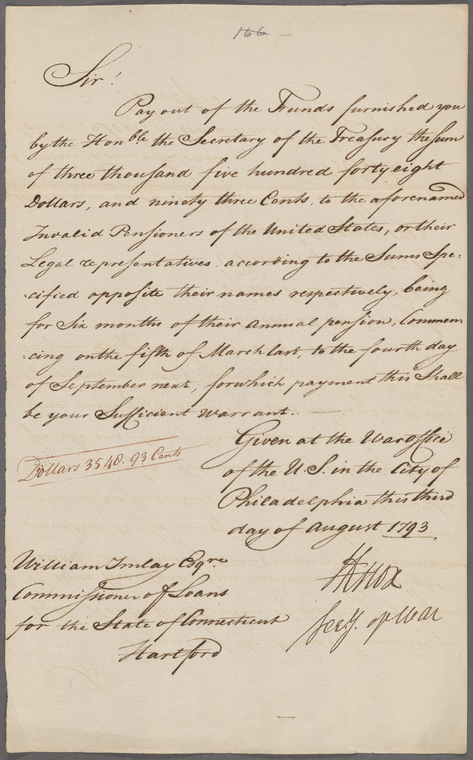 166 —
Sir!
Pay out of the Funds furnished you
by the Honble the Secretary of the Treasury the sum
of three thousand five hundred forty eight
Dollars, and ninety three Cents, to the aforenamed
Invalid Pensioners of the United States, or their
Legal representatives, according to the Sums Spe:
:cified opposite their names respectively, being
for Six months of their annual pension, Commen
:cing on the fifth of March last, to the fourth day
of September next, for which payment this Shall
be your Sufficient Warrant. —
Given at the War office
of the U.S. in the City of
Philadelphia this third
day of August 1793
Dollars 3548. 93 Cents
HKnox
Secy. of War
William Imlay Esqre
Commissioner of Loans
for the State of Connecticut
Hartford